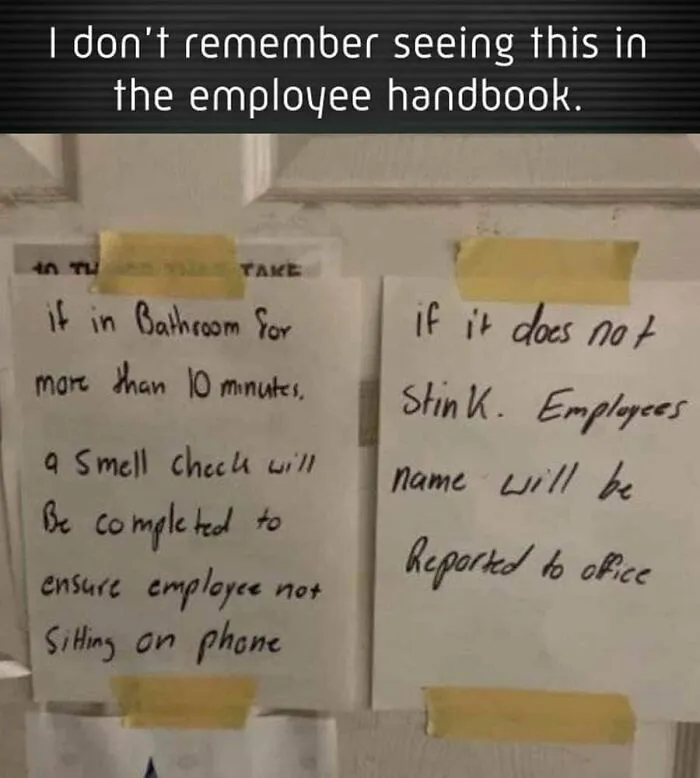 I don't remember seeing this in
the employee handbook.
TAKE
if in Bathroom for
more than 10 minutes.
a Smell check will
Be completed to
ensure employee not
Sitting on phone
if it does not
stink. Employees
name will be
Reported to office